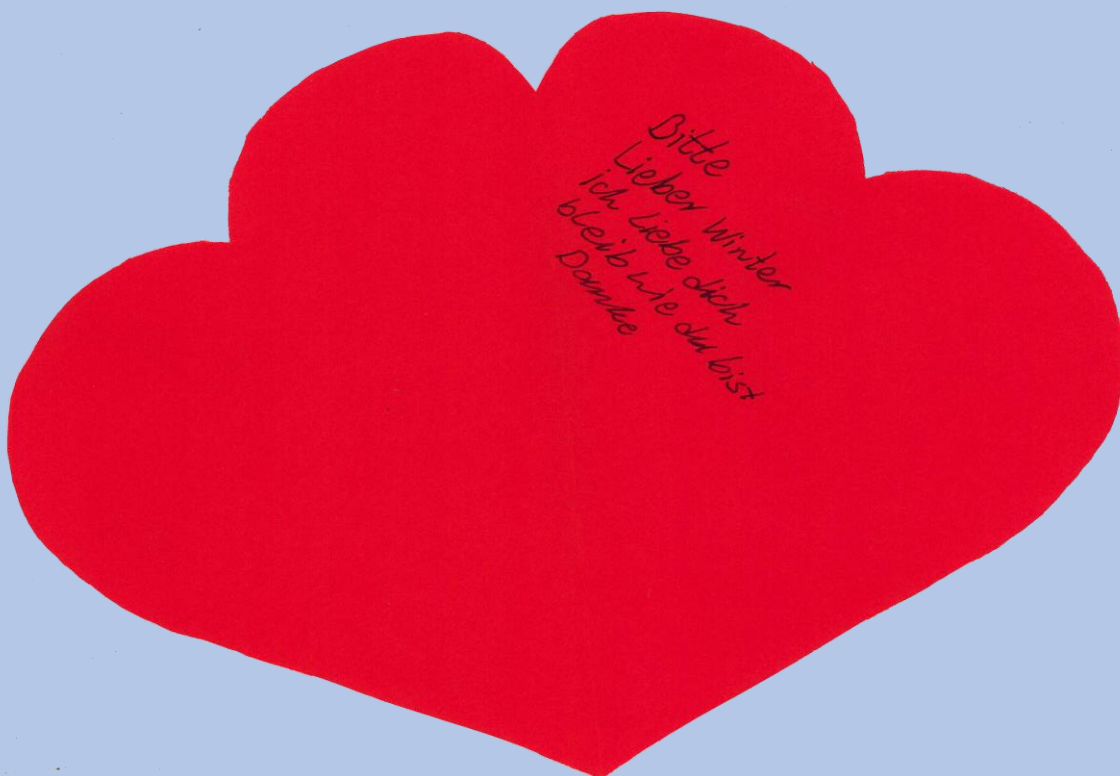 Bitte
Lieber Winter
ich Liebe dich
bleib wie du bist
Danke